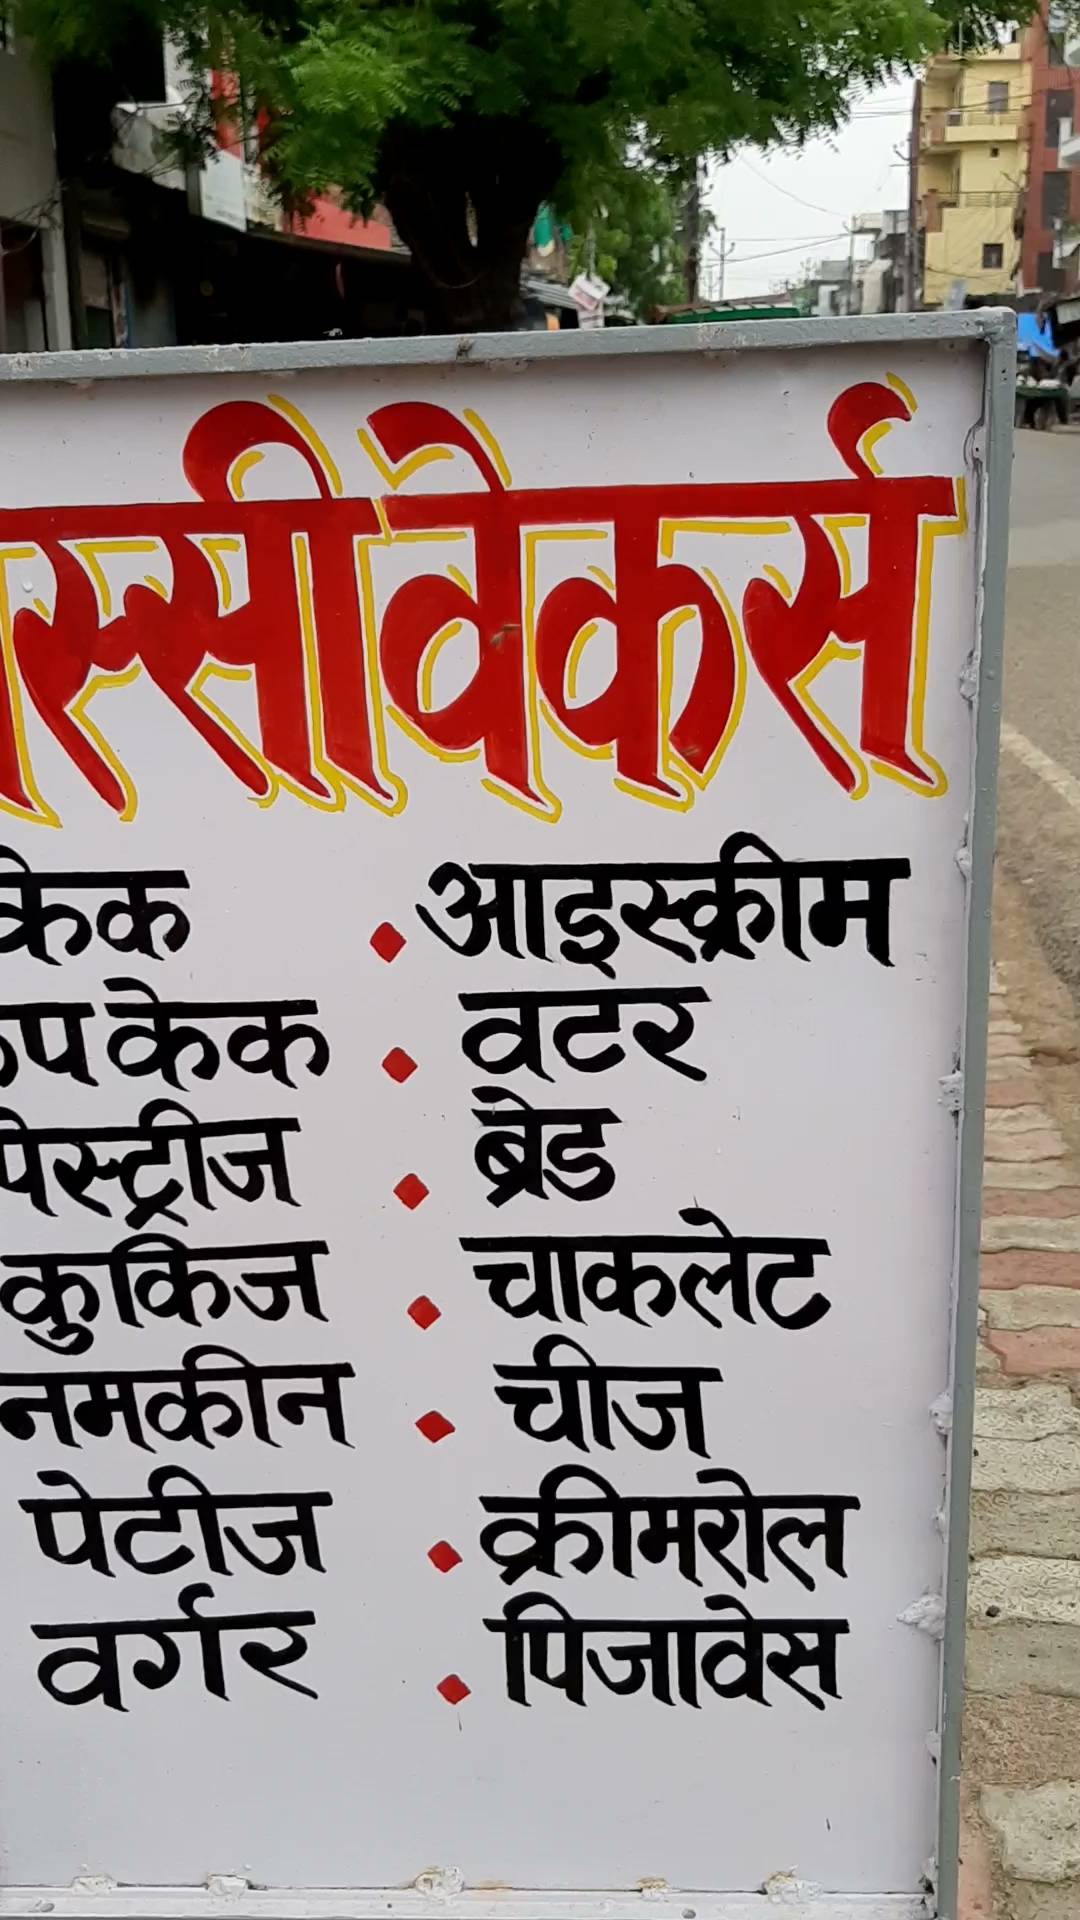 स्सी वेकर्स
केक . आइस्क्रीम
प केक . वटर
पेस्ट्रीज . ब्रेड
कुकिज . चाकलेट
नमकीन . चीज
पेटीज . क्रीमरोल
वर्गर . पिजावेस